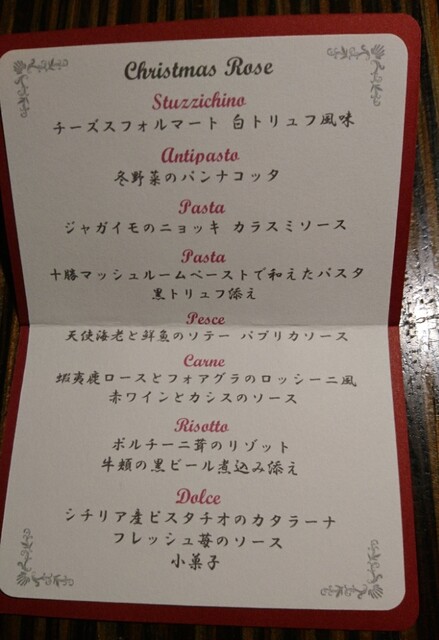 Christmas Rose
Stuzzichino
チーズスフォルマート 白トリュフ風味
Antipasto
冬野菜のパンナコッタ
Pasta
ジャガイモのニョッキ カラスミソース
Pasta
十勝マッシュルームペーストで和えたパスタ
黒トリュフ添え
Pesce
天使海老と鮮魚のソテー パプリカソース
Carne
蝦夷鹿ロースとフォアグラのロッシーニ風
赤ワインとカシスのソース
Risotto
ポルチーニ茸のリゾット
牛頬の黒ビール煮込み添え
Dolce
シチリア産ピスタチオのカタラーナ
フレッシュ苺のソース
小菓子